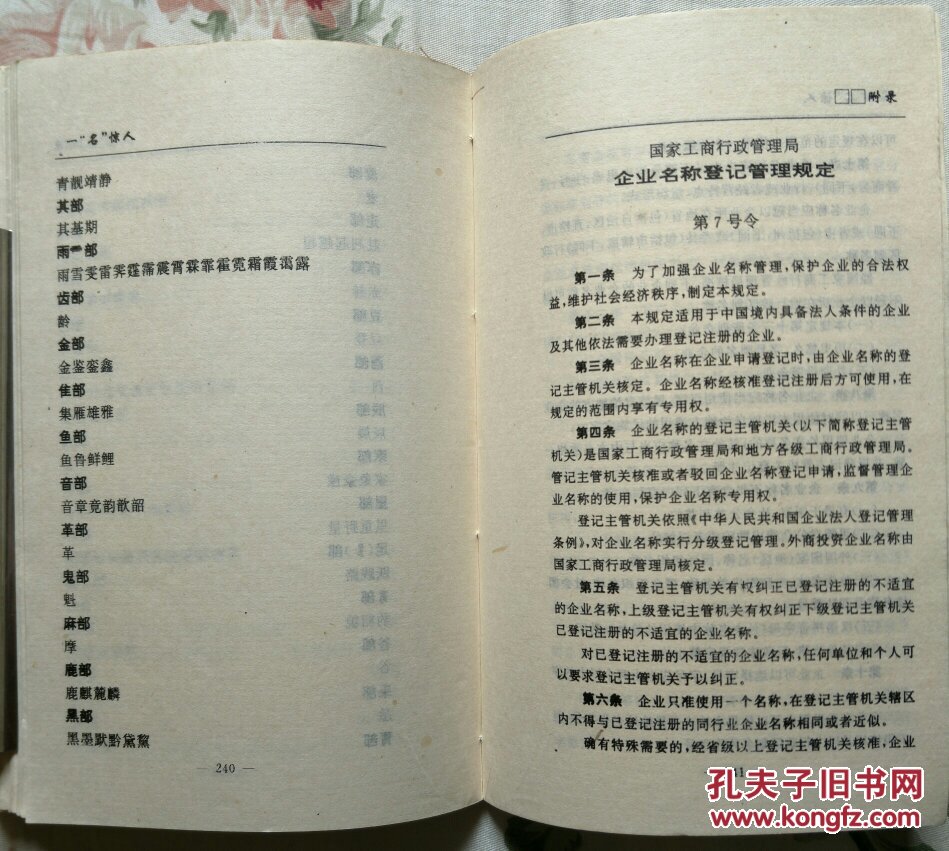 一“名”惊人
青靓靖静
其部
其基期
雨部
雨雪雯雷霁霆霈震霄霖霏霍霓霜霞霭露
齿部
龄
金部
金鉴銮鑫
隹部
集雁雄雅
鱼部
鱼鲁鲜鲤
音部
音章竟韵歆韶
革部
革
鬼部
魁
麻部
摩
鹿部
鹿麒麓麟
黑部
黑墨默黔黛黧
— 240 —
□□附录
国家工商行政管理局
企业名称登记管理规定
第7号令
第一条 为了加强企业名称管理，保护企业的合法权
益，维护社会经济秩序，制定本规定。
第二条 本规定适用于中国境内具备法人条件的企业
及其他依法需要办理登记注册的企业。
第三条 企业名称在企业申请登记时，由企业名称的登
记主管机关核定。企业名称经核准登记注册后方可使用，在
规定的范围内享有专用权。
第四条 企业名称的登记主管机关（以下简称登记主管
机关）是国家工商行政管理局和地方各级工商行政管理局。
管记主管机关核准或者驳回企业名称登记申请，监督管理企
业名称的使用，保护企业名称专用权。
登记主管机关依照《中华人民共和国企业法人登记管理
条例》，对企业名称实行分级登记管理。外商投资企业名称由
国家工商行政管理局核定。
第五条 登记主管机关有权纠正已登记注册的不适宜
的企业名称，上级登记主管机关有权纠正下级登记主管机关
已登记注册的不适宜的企业名称。
对已登记注册的不适宜的企业名称，任何单位和个人可
以要求登记主管机关予以纠正。
第六条 企业只准使用一个名称，在登记主管机关辖区
内不得与已登记注册的同行业企业名称相同或者近似。
确有特殊需要的，经省级以上登记主管机关核准，企业
孔夫子旧书网
www.kongfz.com